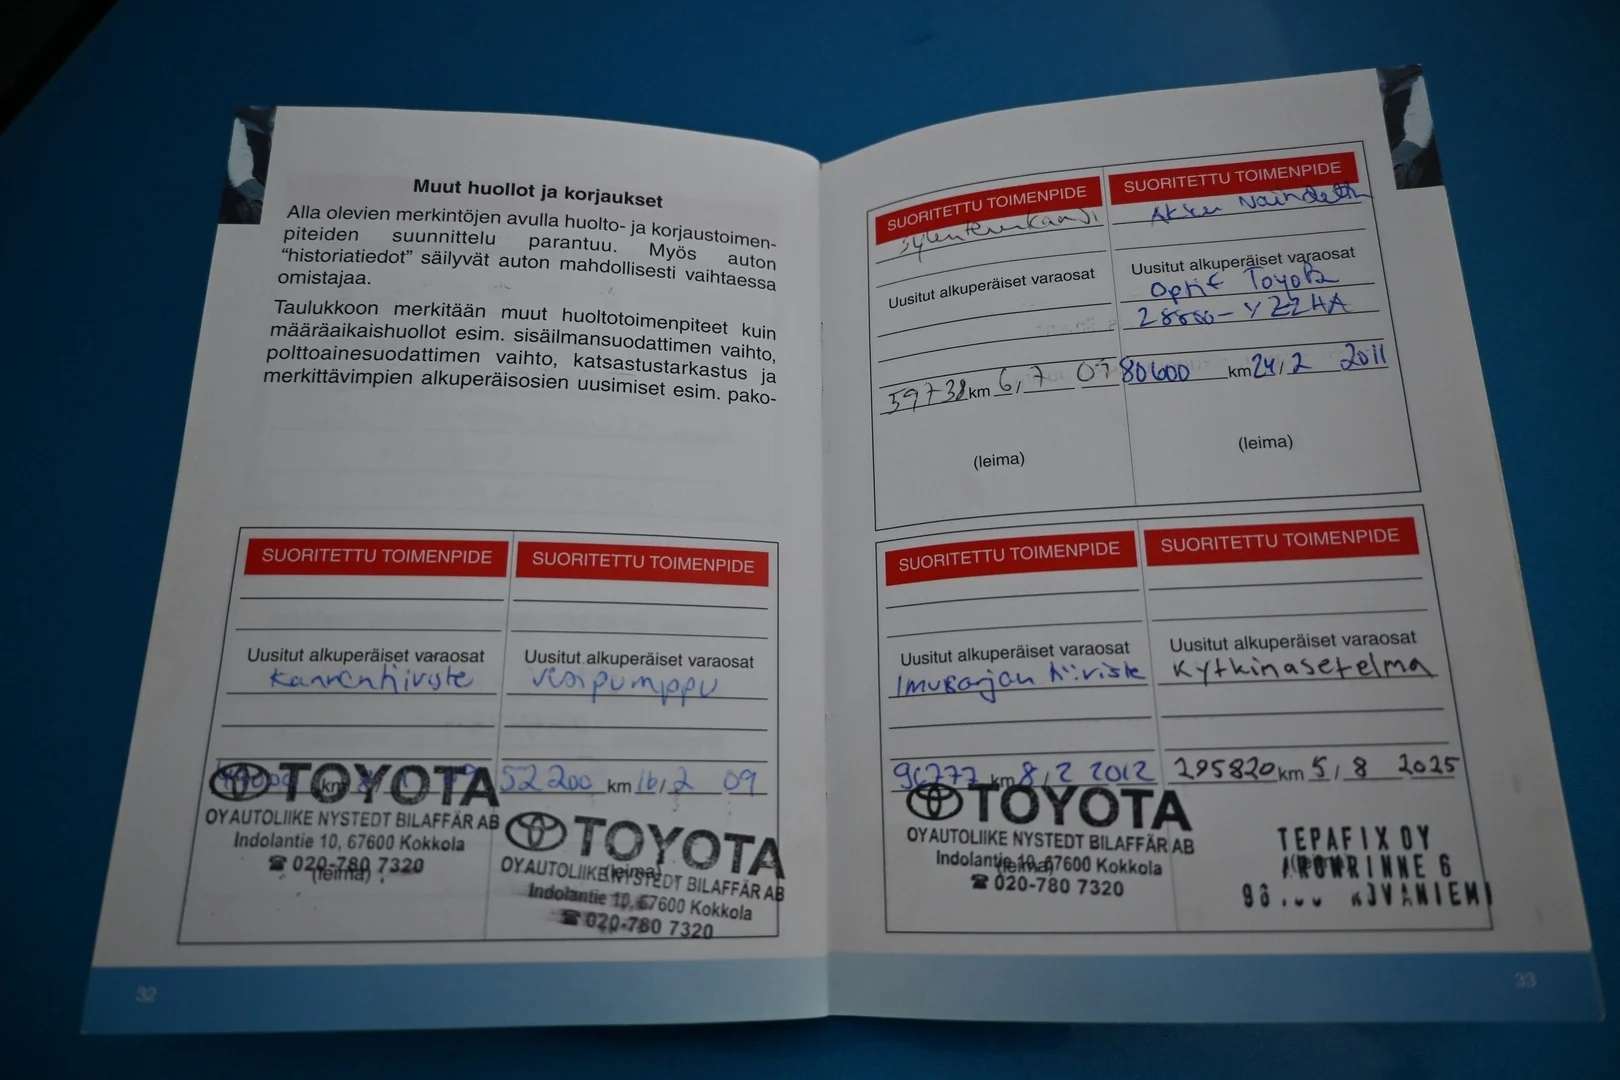 Muut huollot ja korjaukset
Alla olevien merkintöjen avulla huolto- ja korjaustoimen-
piteiden suunnittelu parantuu. Myös auton
“historiatiedot” säilyvät auton mahdollisesti vaihtaessa
omistajaa.
Taulukkoon merkitään muut huoltotoimenpiteet kuin
määräaikaishuollot esim. sisäilmansuodattimen vaihto,
polttoainesuodattimen vaihto, katsastustarkastus ja
merkittävimpien alkuperäisosien uusimiset esim. pako-
SUORITETTU TOIMENPIDE
Uusitut alkuperäiset varaosat
Kannenhiviste
km
TOYOTA
OY AUTOLIIKE NYSTEDT BILAFFÄR AB
Indolantie 10, 67600 Kokkola
☎ 020-780 7320
(leima)
SUORITETTU TOIMENPIDE
Uusitut alkuperäiset varaosat
vesipumppu
52200 km 16/2 09
TOYOTA
OY AUTOLIIKE NYSTEDT BILAFFÄR AB
(leima)
Indolantie 10, 67600 Kokkola
☎ 020-780 7320
32
SUORITETTU TOIMENPIDE
Uusitut alkuperäiset varaosat
59738 km 6/7 09
(leima)
SUORITETTU TOIMENPIDE
Akun
Uusitut alkuperäiset varaosat
Optif Toyota
28800-YZZHA
80600 km 24/2 2011
(leima)
SUORITETTU TOIMENPIDE
Uusitut alkuperäiset varaosat
Imusarjan tiiviste
96777 km 8/2 2012
TOYOTA
OY AUTOLIIKE NYSTEDT BILAFFÄR AB
Indolantie 10, 67600 Kokkola
(leima)
☎ 020-780 7320
SUORITETTU TOIMENPIDE
Uusitut alkuperäiset varaosat
Kytkinasetelma
295820 km 5/8 2025
TEPAFIX OY
6
33